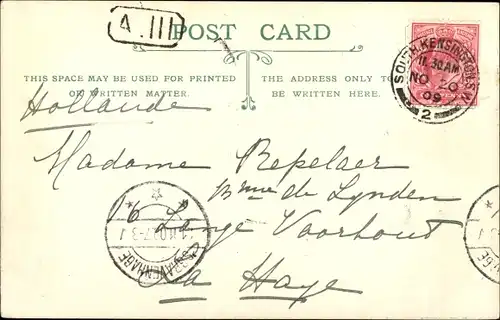 A. III
POST CARD
THIS SPACE MAY BE USED FOR PRINTED
OR WRITTEN MATTER.
THE ADDRESS ONLY TO
BE WRITTEN HERE.
SOUTH KENSINGTON S.W
11.30 AM
NO 20
09
2
Hollande
Madame Repelaer
Bnne de Lynden
16 Lange Voorhout
La Haye
'S-GRAVENHAGE